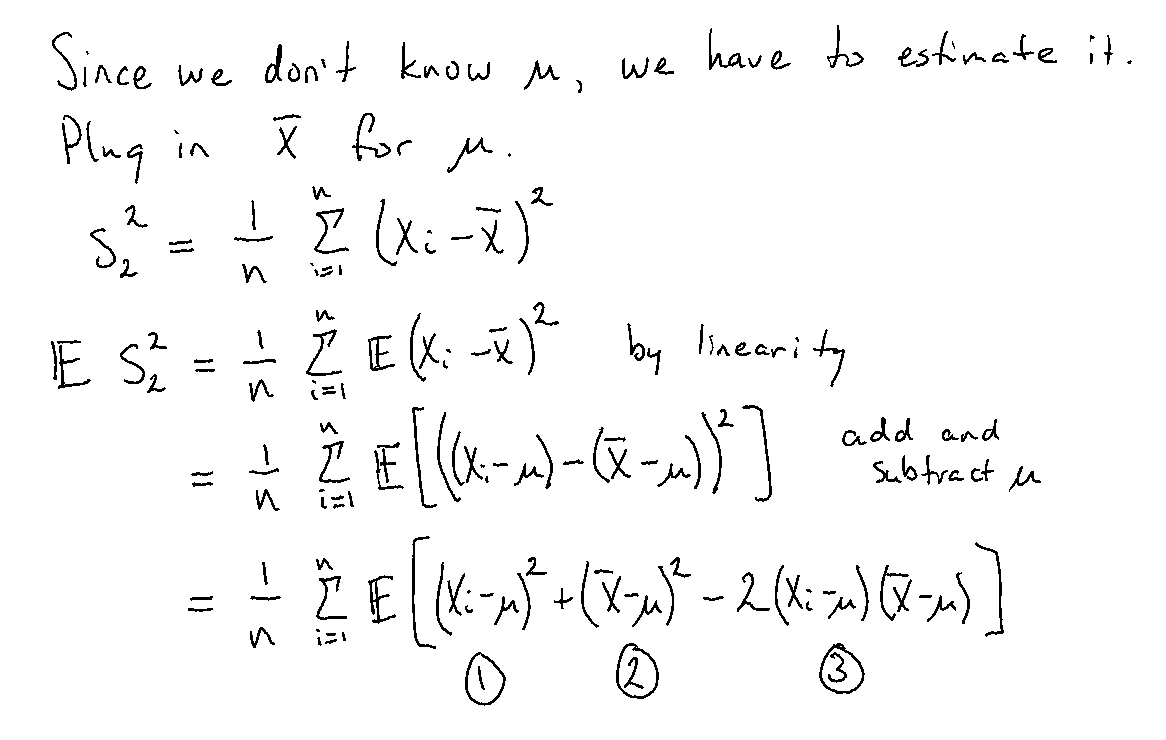 Since we don't know μ, we have to estimate it.
Plug in X̄ for μ.
S₂² = 1/n Σᵢ₌₁ⁿ (Xᵢ - X̄)²
𝔼 S₂² = 1/n Σᵢ₌₁ⁿ 𝔼(Xᵢ - X̄)² by linearity
= 1/n Σᵢ₌₁ⁿ 𝔼[((Xᵢ-μ)-(X̄-μ))²] add and subtract μ
= 1/n Σᵢ₌₁ⁿ 𝔼[(Xᵢ-μ)² + (X̄-μ)² - 2(Xᵢ-μ)(X̄-μ)]
① ② ③